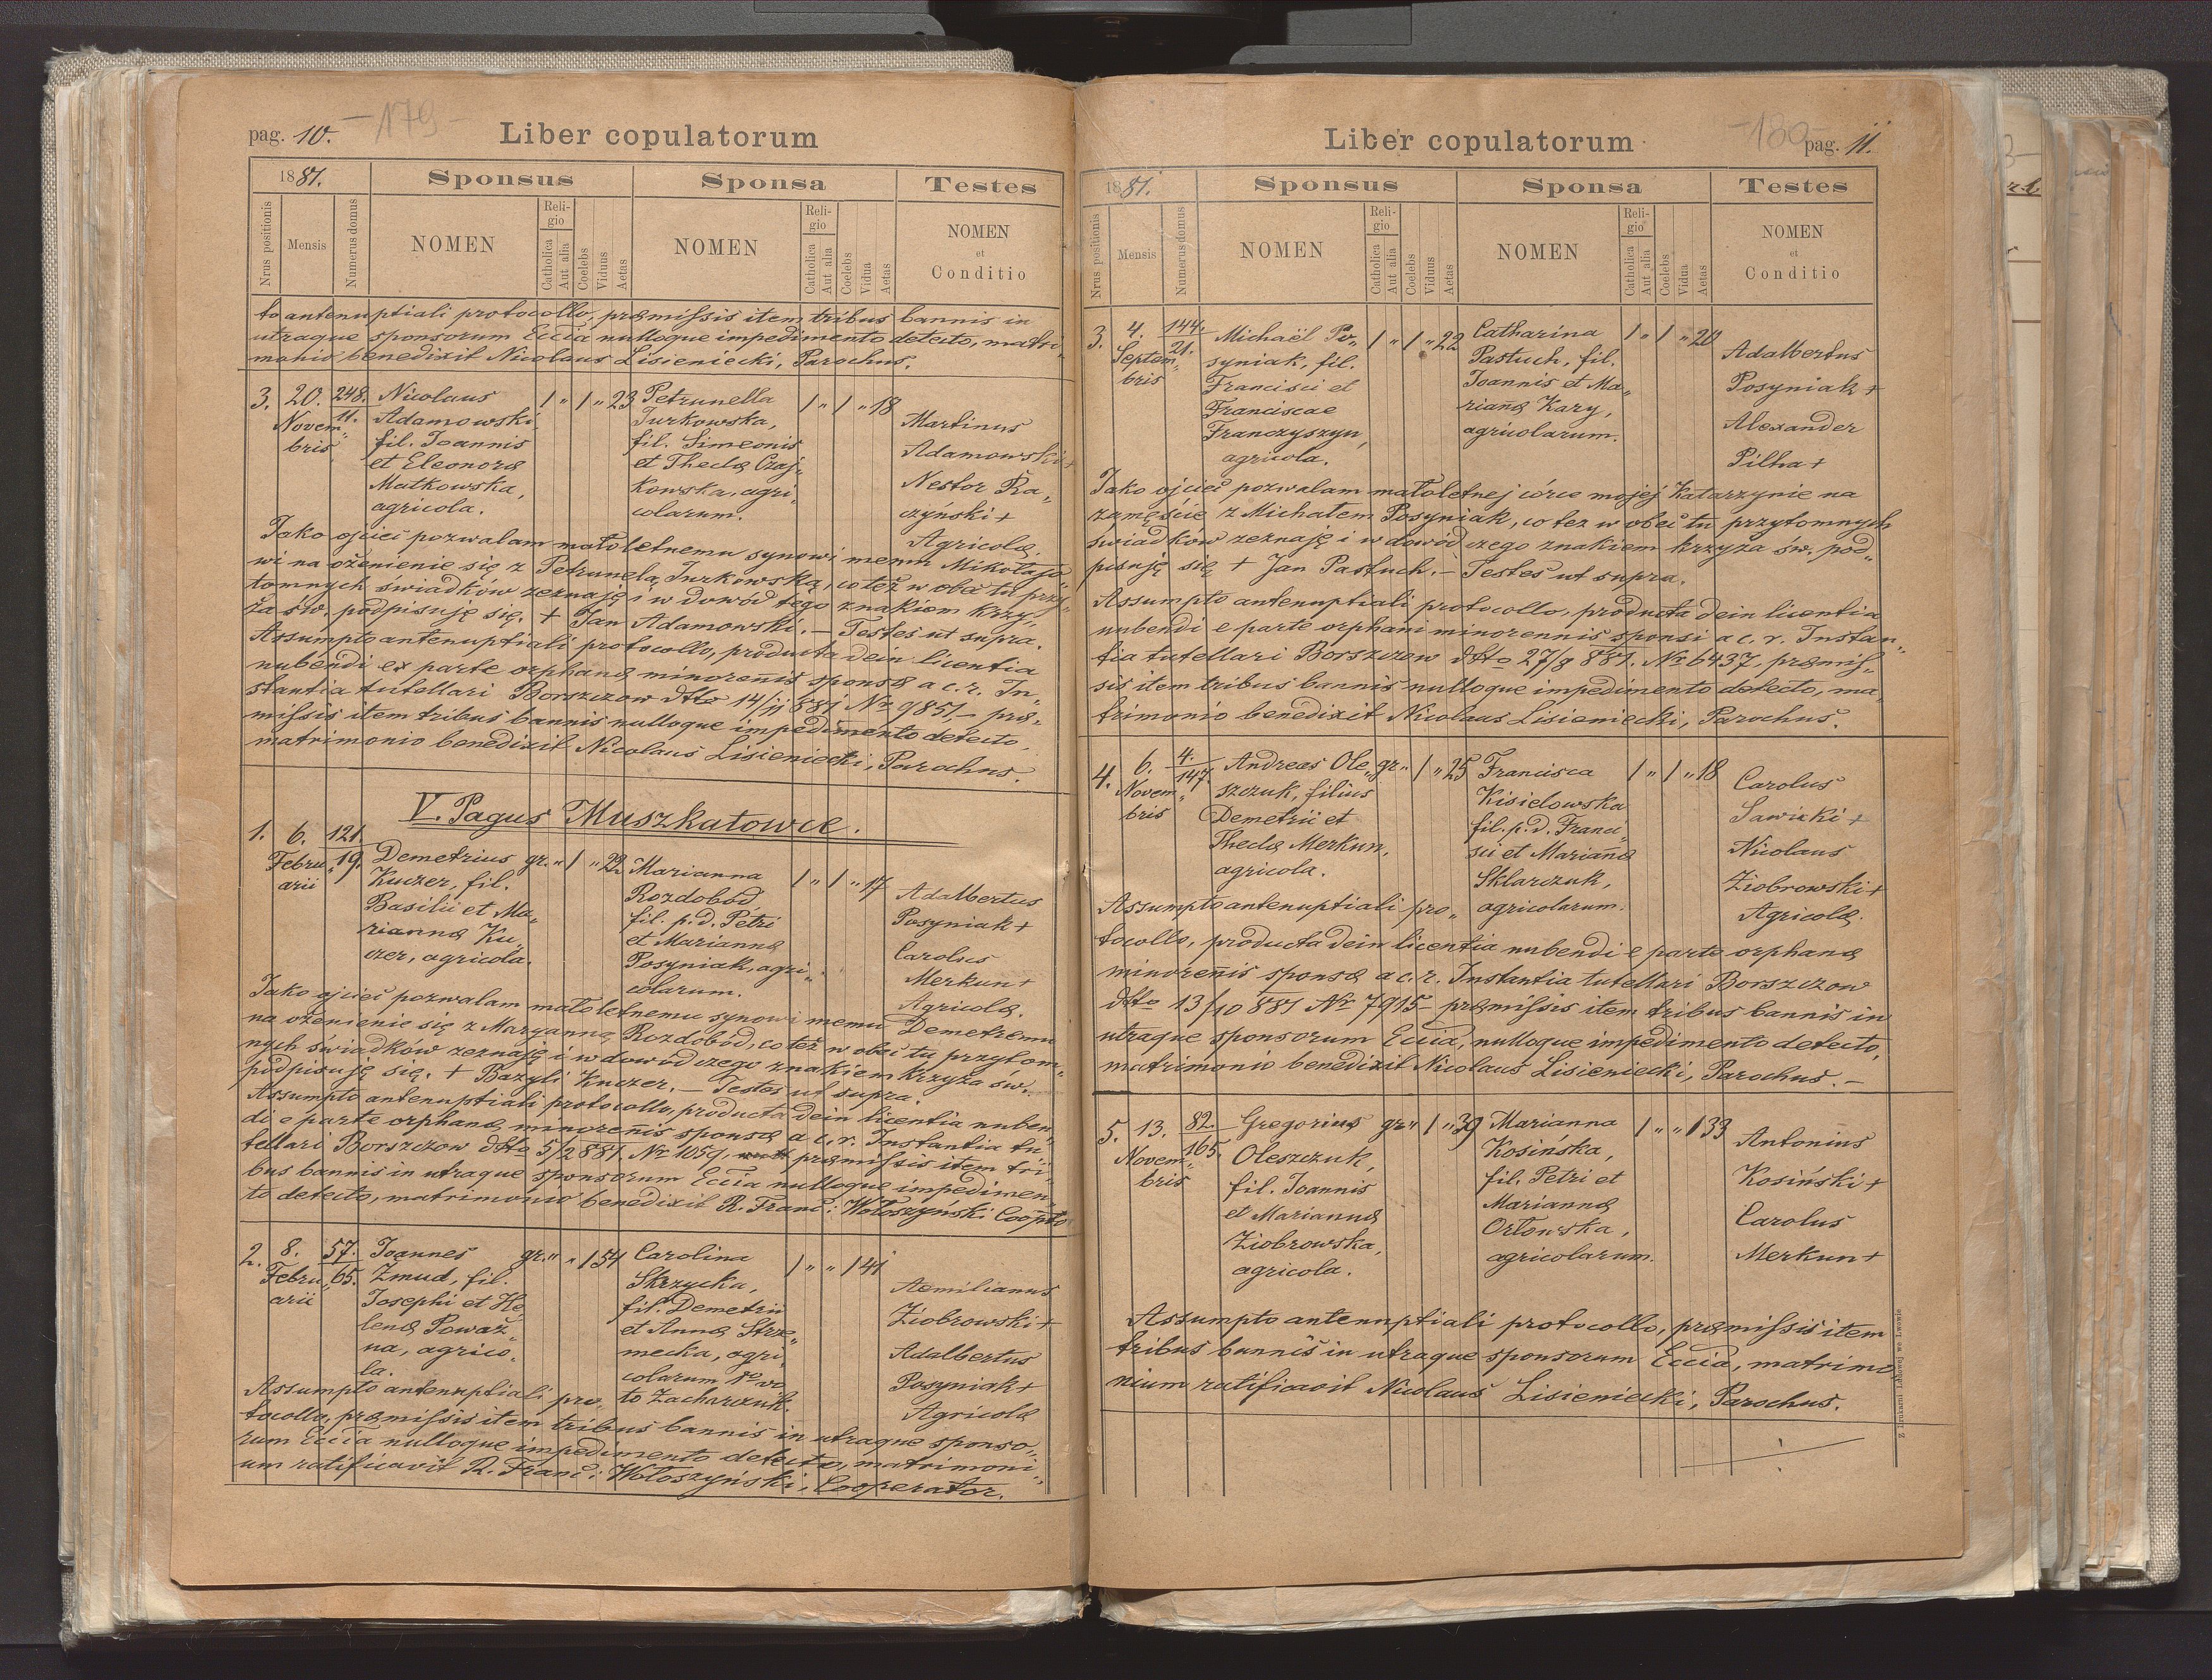 pag. 10. -179-
Liber copulatorum
1881. Sponsus Sponsa Testes
Nrus positionis Mensis Numerus domus NOMEN Religio Catholica Aut alia Coelebs Viduus Aetas NOMEN Religio Catholica Aut alia Coelebs Vidua Aetas NOMEN et Conditio
to antenuptiali protocollo, præmissis item tribus bannis in
utraque sponsorum Eccia nulloque impedimento detecto, matri„
monio benedixit Nicolaus Lisieniecki, Parochus.
3. 20. Novem„bris 248. 11.
Nicolaus
Adamowski,
fil. Joannis
et Eleonoræ
Matkowska,
agricola.
1 „ 1 „ 23
Petrunella
Jurkowska,
fil. Simeonis
et Theclæ Czaj„
kowska, agri„
colarum.
1 „ 1 „ 18
Martinus
Adamowski +
Nestor Ra„
czyński +
Agricolæ.
Jako ojciec pozwalam małoletnemu synowi memu Mikołajo„
wi na ożenienie się z Petrunelą Jurkowską, co też w obec tu przy„
tomnych świadków zeznaję i w dowód tego znakiem krzy„
ża św. podpisuję się. + Jan Adamowski. – Testes ut supra.
Assumpto antenuptiali protocollo, producta dein licentia
nubendi ex parte orphanæ minoreñis sponsæ a c. r. In„
stantia tutellari Borszczow dtto 14/11 881 Nr 9851, – præ„
missis item tribus bannis nulloque impedimento detecto,
matrimonio benedixit Nicolaus Lisieniecki, Parochus.
V. Pagus Muszkatowce.
1. 6. Febru„arii 121. 19.
Demetrius
Kuczer, fil.
Basilii et Ma„
riannæ Ku„
czer, agricola.
gr. „ 1 „ 22
Marianna
Rozdobód,
fil. p. d. Petri
et Mariannæ
Posyniak, agri„
colarum.
1 „ 1 „ 17
Adalbertus
Posyniak +
Carolus
Merkun +
Agricolæ.
Jako ojciec pozwalam małoletnemu synowi memu Demetremu
na ożenienie się z Maryanną Rozdobód, co też w obec tu przytom„
nych świadków zeznaję i w dowód czego znakiem krzyża św.
podpisuję się. + Bazyli Kuczer. – Testes ut supra.
Assumpto antenuptiali protocollo, producta dein licentia nuben„
di e parte orphanæ minoreñis sponsæ a c. r. Instantia tu„
tellari Borszczow dtto 5/2 881 Nr 1059, præmissis item tri„
bus bannis in utraque sponsorum Eccia nulloque impedimen„
to detecto, matrimonio benedixit R. Franc: Wołoszyński Coopto
2. 8. Febru„arii 57. 65.
Joannes
Żmud, fil.
Josephi et He„
lenæ Poważ„
na, agrico„
la.
gr. „ „ 1 54
Carolina
Skrzycka,
fil. Demetrii
et Annæ Strze„
mecka, agri„
colarum
to Zacharczuk.
1 „ „ 1 41
Aemilianus
Ziobrowski +
Adalbertus
Posyniak +
Agricolæ
Assumpto antenuptiali pro„
tocollo, præmissis item tribus bannis in utraque sponso„
rum Eccia nulloque impedimento detecto, matrimoni„
um ratificavit R. Franc: Wołoszyński, Cooperator.
-180- pag. 11.
Liber copulatorum
1881. Sponsus Sponsa Testes
Nrus positionis Mensis Numerus domus NOMEN Religio Catholica Aut alia Coelebs Viduus Aetas NOMEN Religio Catholica Aut alia Coelebs Vidua Aetas NOMEN et Conditio
3. 4. Septem„bris 144. 21.
Michaël Po„
syniak, fil.
Francisci et
Franciscae
Franczyszyn,
agricola.
1 „ 1 „ 22
Catharina
Pastuch, fil.
Joannis et Ma„
riañæ Kary,
agricolarum.
1 „ 1 „ 20
Adalbertus
Posyniak +
Alexander
Pilha +
Jako ojciec pozwalam małoletnej córce mojej Katarzynie na
zamęście z Michałem Posyniak, co też w obec tu przytomnych
świadków zeznaję i w dowód czego znakiem krzyża św. pod„
pisuję się + Jan Pastuch. – Testes ut supra.
Assumpto antenuptiali protocollo, producta dein licentia
nubendi e parte orphani minorennis sponsi a c. r. Instan„
tia tutellari Borszczow dtto 27/8 881. Nr 6437, præmis„
sis item tribus bannis nulloque impedimento detecto, ma„
trimonio benedixit Nicolaus Lisieniecki, Parochus.
4. 6. Novem„bris 4. 147.
Andreas Ole„
szczuk, filius
Demetrii et
Theclæ Merkun,
agricola.
gr. „ 1 „ 25
Francisca
Kisielowska
fil. p. d. Franci„
sci et Mariañæ
Sklarczuk,
agricolarum.
1 „ 1 „ 18
Carolus
Sawicki +
Nicolaus
Ziobrowski +
Agricolæ.
Assumpto antenuptiali pro„
tocollo, producta dein licentia nubendi e parte orphanæ
minoreñis sponsæ a c. r. Instantia tutellari Borszczow
dtto 13/10 881 Nr 7915 – præmissis item tribus bannis in
utraque sponsorum Eccia, nulloque impedimento detecto,
matrimonio benedixit Nicolaus Lisieniecki, Parochus. –
5. 13. Novem„bris 82. 165.
Gregorius
Oleszczuk,
fil. Joannis
et Mariannæ
Ziobrowska,
agricola.
gr „ 1 „ 39
Marianna
Kosińska,
fil. Petri et
Mariannæ
Orłowska,
agricolarum.
1 „ „ 1 33
Antonius
Kosiński +
Carolus
Merkun +
Assumpto antenuptiali protocollo, præmissis item
tribus bannis in utraque sponsorum Eccia, matrimo„
nium ratificavit Nicolaus Lisieniecki, Parochus.
Z Drukarni Ludowej we Lwowie